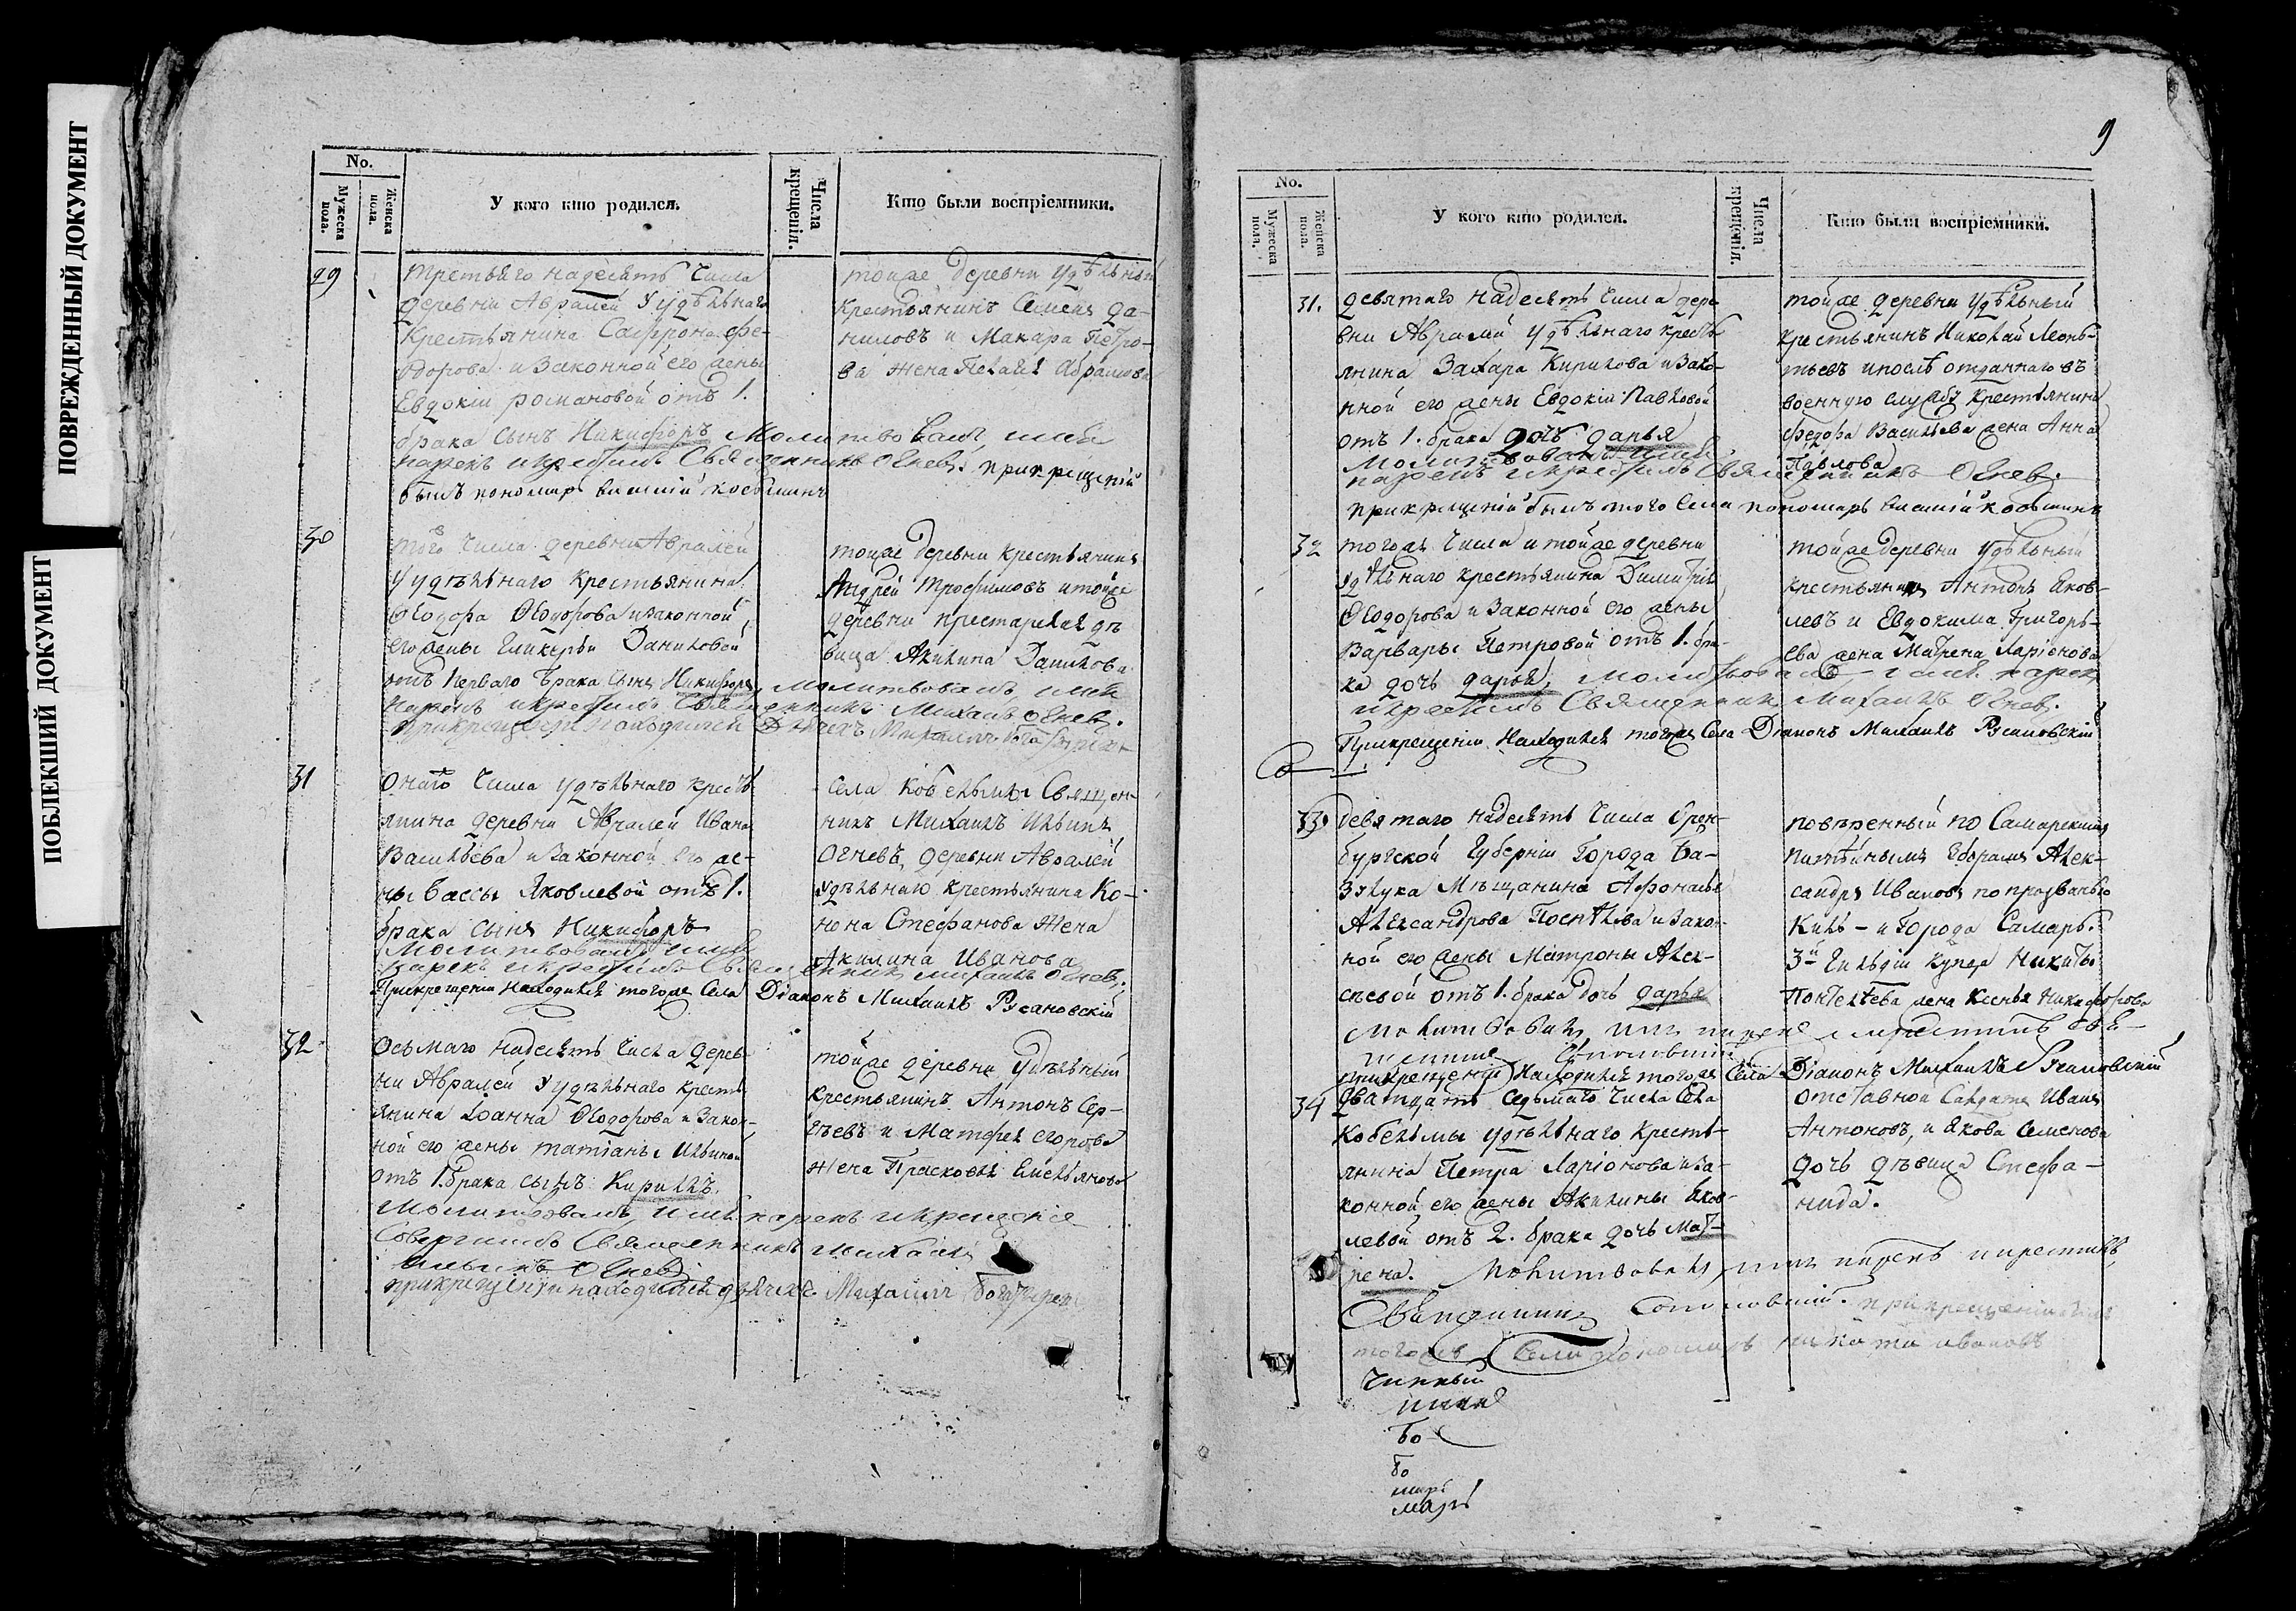 ПОВРЕЖДЕННЫЙ ДОКУМЕНТ
ПОБЛЕКШИЙ ДОКУМЕНТ
No.
Мужеска пола.
Женска пола.
У кого кто родился.
Числа крещенія.
Кто были воспріемники.
29
третьяго надесять числа
деревни Авралей Уудѣльнаго
Крестьянина Сафрона Фе-
дорова и Законной его жены
Евдокіи романовой отъ 1.
брака сынъ Никифоръ Молитвовалъ, имя
нарекъ и крестилъ Священникъ Огневъ. при крещеніи
былъ пономарь
тойже деревни Удѣльный
крестьянинъ Семенъ Да-
ниловъ и Макара Петро-
ва жена Пелагія Абрамова
30
того числа деревни Авралей
Уудѣльнаго крестьянина
Ѳеодора Ѳеодорова и законной
его жены Гликерьи Даниловой
отъ перваго брака сынъ Никифоръ, молитвовалъ, имя
нарекъ и крестилъ Священникъ Михаилъ Огневъ.
при крещеніи находился Дьячекъ Михаилъ
тойже деревни крестьянинъ
Андрей Трофимовъ и тойже
деревни престарелая дѣ-
вица Акилина Данилова
31
Онаго числа удѣльнаго кресть-
янина деревни Авралей Ивана
Васильева и Законной его же-
ны Вассы Яковлевой отъ 1.
брака сынъ Никифоръ
Молитвовалъ имя
нарекъ и крестилъ Священникъ Михаилъ Огневъ.
При крещеніи находился тогоже Села Діаконъ Михаилъ Русановскій
села Кобельмы Священ-
никъ Михаилъ Ильинъ
Огневъ, деревни Авралей
удѣльнаго крестьянина Ко-
нона Стефанова жена
Акилина Иванова
32
Осьмаго надесять числа дерев-
ни Авралей Уудѣльнаго кресть-
янина Іоанна Ѳеодорова и Закон-
ной его жены татіаны Ильиной
отъ 1. брака сынъ Кириллъ.
Молитвовалъ, имя нарекъ и крещеніе
Совершилъ Священникъ Михаилъ
Ильинъ Огневъ
при крещеніи находился дьячекъ Михаилъ
тойже деревни удѣльный
Крестьянинъ Антонъ Сер-
гѣевъ и Матфея егорова
жена Прасковья Емельянова
9
No.
Мужеска пола.
Женска пола.
У кого кто родился.
Числа крещенія.
Кто были воспріемники.
31.
девятаго надесять числа дере-
вни Авралей удѣльнаго кресть-
янина Захара Кирилова и Зако-
нной его жены Евдокіи Павловой
отъ 1. брака дочь дарья
Молитвовалъ имя
нарекъ и крестилъ Священникъ Огневъ.
при крещеніи былъ того села пономарь
тойже деревни удѣльный
крестьянинъ Николай Леонь-
тьевъ и послѣ отданнаго въ
военную службу крестьянина
Федора Васильева жена Анна
Павлова
32
тогоже числа и тойже деревни
удѣльнаго крестьянина Димитрія
Ѳеодорова и Законной его жены
Варвары Петровой отъ 1. бра-
ка дочь дарья, молитвовалъ имя нарекъ
и крестилъ Священникъ Михаилъ Огневъ.
При крещеніи находился тогоже Села Діаконъ Михаилъ Русановскій
тойже деревни удѣльный
крестьянинъ Антонъ Яков-
левъ и Евдокима Григорь-
ева жена Матрена Ларіонова
33
девятаго надесять числа Орен-
бургской Губерніи города Бу-
зулука Мѣщанина Афонасья
Александрова Поснѣлова и Закон-
ной его жены Матроны Алек-
сѣевой отъ 1. брака дочь дарья
Молитвовалъ, имя нарекъ и крестилъ Свя-
щенникъ
при крещеніи находился тогоже Села Діаконъ Михаилъ Русановскій
повѣренный по Самарскимъ
питѣйнымъ сборамъ Алек-
сандръ Ивановъ по прозванью
Киль - и города Самары
3й Гильдіи купца Никиты
Пантелѣева жена Ксенья Никифорова
34
Двадцать седьмаго числа Села
Кобельмы удѣльнаго кресть-
янина Петра Ларіонова и За-
конной его жены Акилины Яков-
левой отъ 2. брака дочь мат-
рена. Молитвовалъ, имя нарекъ и крестилъ,
Священникъ
при крещеніи былъ
тогоже Села пономарь никита ивановъ
отставной Салдатъ Иванъ
Антоновъ, и Якова Семенова
дочь дѣвица Стефа-
нида.
Бо
Бо
марь